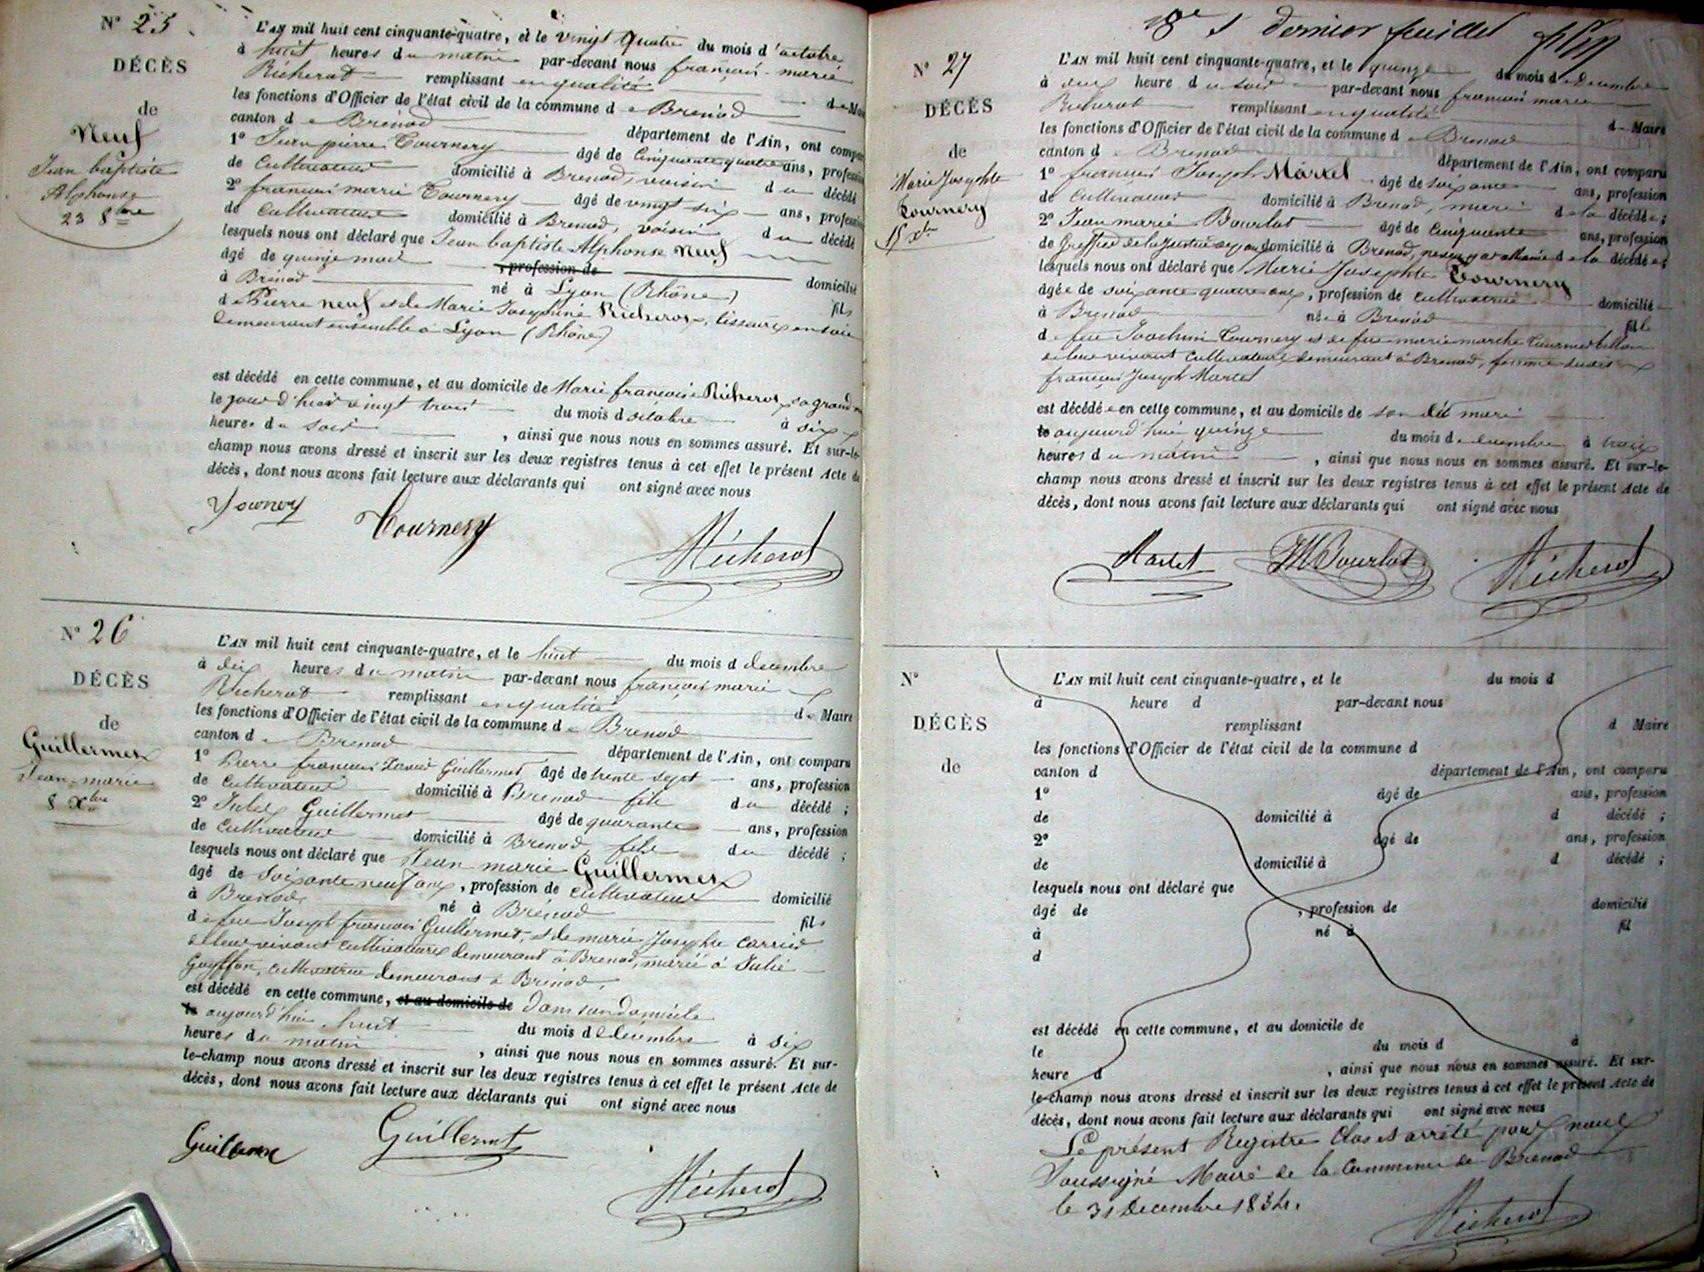 N° 25
DÉCÈS
de
Neuf
Jean baptiste
Alphonse
23 8bre
L'AN mil huit cent cinquante-quatre, et le vingt quatre du mois d'octobre
à huit heures du matin par-devant nous françois-marie
Richerot remplissant en qualité de Maire
les fonctions d'Officier de l'état civil de la commune de Brénod
canton de Brénod département de l'Ain, ont comparu
1° Jean pierre Tournery âgé de Cinquante quatre ans, profession
de Cultivateur domicilié à Brenod, voisin du décédé
2° françois marie Tournery âgé de vingt six ans, profession
de Cultivateur domicilié à Brenod, voisin du décédé
lesquels nous ont déclaré que Jean baptiste Alphonse Neuf
âgé de quinze mois , profession de domicilié
à Brénod né à Lyon (Rhône) fils
de Pierre Neuf et de Marie Josephine Richerot, tisseurs en soie
demeurant ensemble à Lyon (Rhône)
est décédé en cette commune, et au domicile de Marie françoise Richerot sa grand
le jour d'hier vingt trois du mois d'octobre à six
heures du soir , ainsi que nous nous en sommes assuré. Et sur-le-
champ nous avons dressé et inscrit sur les deux registres tenus à cet effet le présent Acte de
décès, dont nous avons fait lecture aux déclarants qui ont signé avec nous
Tournery Tournery Richerot
N° 26
DÉCÈS
de
Guillermet
Jean-marie
8 Xbre
L'AN mil huit cent cinquante-quatre, et le huit du mois de decembre
à dix heures du matin par-devant nous françois marie
Richerot remplissant en qualité de Maire
les fonctions d'Officier de l'état civil de la commune de Brenod
canton de Brenod département de l'Ain, ont comparu
1° Pierre françois Guillermet âgé de trente sept ans, profession
de Cultivateur domicilié à Brenod fils du décédé ;
2° Julis Guillermet âgé de quarante ans, profession
de Cultivateur domicilié à Brenod, fils du décédé ;
lesquels nous ont déclaré que Jean marie Guillermet
âgé de Soixante neuf ans , profession de cultivateur domicilié
à Brenod né à Brénod fils
de feu Joseph françois Guillermet, et de marie Josephte Carrier
de leur vivant cultivateurs demeurant à Brenod, marié à Julie
cultivatrice demeurant à Brénod,
est décédé en cette commune, et au domicile de dans son domicile
le aujourd'hui huit du mois de décembre à six
heures du matin , ainsi que nous nous en sommes assuré. Et sur-
le-champ nous avons dressé et inscrit sur les deux registres tenus à cet effet le présent Acte de
décès, dont nous avons fait lecture aux déclarants qui ont signé avec nous
Guillermet Guillermet Richerot
8e et dernier feuillet
N° 27
DÉCÈS
de
Marie Josephte
Tournery
15 Xbre
L'AN mil huit cent cinquante-quatre, et le quinze du mois de decembre
à deux heure du soir par-devant nous françois marie
Richerot remplissant en qualité de Maire
les fonctions d'Officier de l'état civil de la commune de Brenod
canton de Brenod département de l'Ain, ont comparu
1° françois Joseph Martel âgé de soixante ans, profession
de Cultivateur domicilié à Brenod, mari de la décédée ;
2° Jean marie Bourlot âgé de Cinquante ans, profession
de Greffier de la Justice de paix domicilié à Brenod, de la décédée ;
lesquels nous ont déclaré que Marie Josephte Tournery
âgée de soixante quatre ans , profession de cultivatrice domiciliée
à Brenod née à Brénod fille
de feu Joachim Tournery et de feu marie
de leur vivant cultivateurs demeurant à Brenod, femme dudit
françois Joseph Martel
est décédée en cette commune, et au domicile de son dit mari
le aujourd'hui quinze du mois de decembre à trois
heures du matin , ainsi que nous nous en sommes assuré. Et sur-le-
champ nous avons dressé et inscrit sur les deux registres tenus à cet effet le présent Acte de
décès, dont nous avons fait lecture aux déclarants qui ont signé avec nous
Martel JM Bourlot Richerot
N°
DÉCÈS
de
L'AN mil huit cent cinquante-quatre, et le du mois d
à heure d par-devant nous
remplissant d Maire
les fonctions d'Officier de l'état civil de la commune d
canton d département de l'Ain, ont comparu
1° âgé de ans, profession
de domicilié à d décédé ;
2° âgé de ans, profession
de domicilié à d décédé ;
lesquels nous ont déclaré que
âgé de , profession de domicilié
à né à fil
d
est décédé en cette commune, et au domicile de
le du mois d à
heure d , ainsi que nous nous en sommes assuré. Et sur-
le-champ nous avons dressé et inscrit sur les deux registres tenus à cet effet le présent Acte de
décès, dont nous avons fait lecture aux déclarants qui ont signé avec nous
Le présent Registre Clos et arrêté par nous
Soussigné Maire de la Commune de Brenod
le 31 Decembre 1854.
Richerot